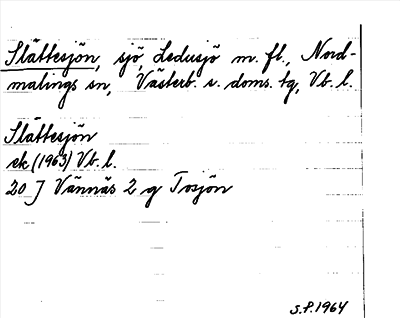 Slättesjön, sjö, Ledusjö m. fl., Nord-
malings sn, Västerb. s. doms. tg, Vb. l.
Slättesjön
ek (1963) Vb. l.
20 J Vännäs 2 g Tosjön
S.P. 1964